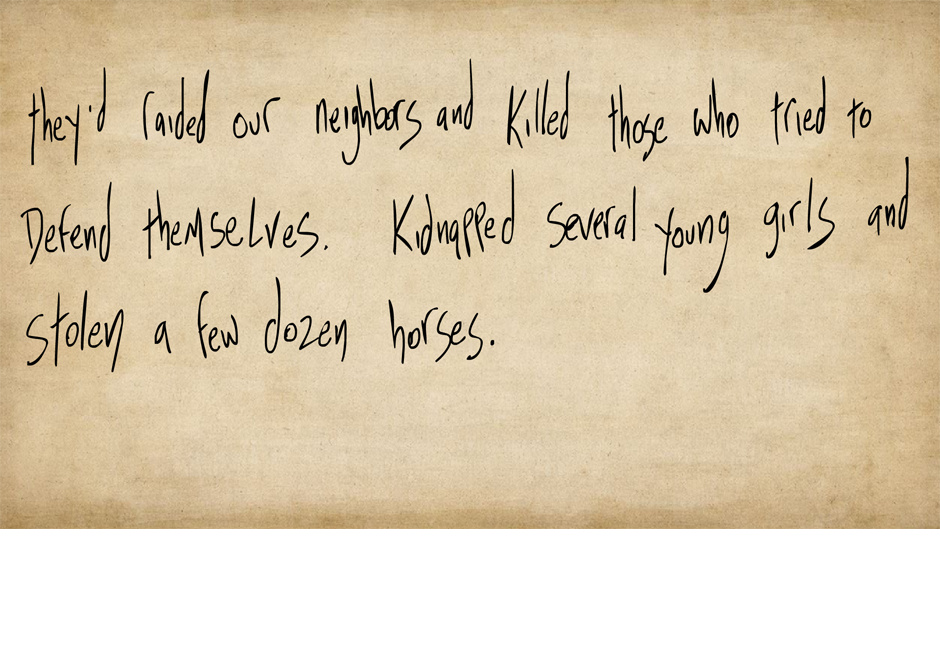 they'd raided our neighbors and killed those who tried to
Defend themselves. Kidnapped several young girls and
stolen a few dozen horses.